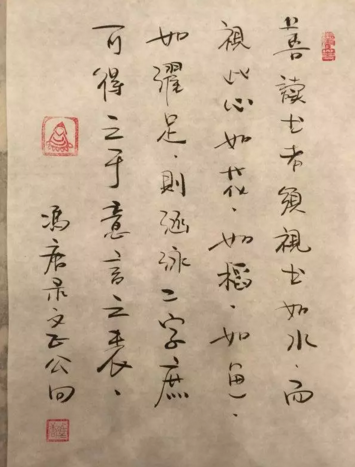 善讀书者須視书如水.而
視此心如花.如稻.如鱼.
如濯足.則涵泳二字庶
可得之于意言之表、
馮唐录文正公句